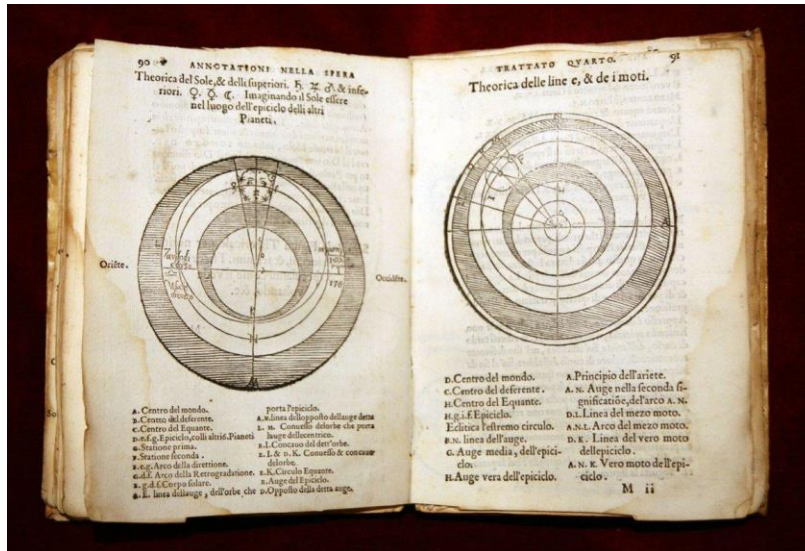 90 ANNOTATIONI NELLA SFERA
Theorica del Sole, & delli superiori. ♄ ♃ ♂ & infe-
riori. ♀. ☿. ☾. Imaginando il Sole essere
nel luogo dell'epiciclo delli altri
Pianeti.
Oriẽte.
Occidẽte.
170
A. Centro del mondo.
B. Centro del deferente.
C. Centro del Equante.
D.e.f.g. Epiciclo, colli altri 6. Pianeti
G. Statione prima.
F. Statione seconda.
E.e.g. Arco della direttione.
G.d.f. Arco della Retrogradatione.
E.g.d.f. Corpo solare.
linea dellauge, dell'orbe che
porta l'epiciclo.
A. linea dell opposito dellauge detta
L. M. Conuesso delorbe che porta
lauge delleccentrico.
I. Concauo del dett'orbe.
E. L & D. K. Conuesso & concauo
delorbe.
K. Circulo Equante.
E. Auge del Epiciclo.
D. Opposito della detta auge.
TRATTATO QVARTO. 91
Theorica delle line e, & de i moti.
D. Centro del mondo.
C. Centro del deferente.
H. Centro del Equante.
H.g.i.f. Epiciclo.
Eclitica l'estremo circulo.
B.N. linea dell'auge.
G. Auge media, dell'epici-
clo.
H. Auge vera dell'epiciclo.
A. Principio dell'ariete.
A. N. Auge nella seconda si-
gnificatiõe, del'arco A. N.
D.L. Linea del mezo moto.
A.N.L. Arco del mezo moto.
D. K. Linea del vero moto
dellepiciclo.
A. N. K. Vero moto dell'epi-
ciclo.
M ii